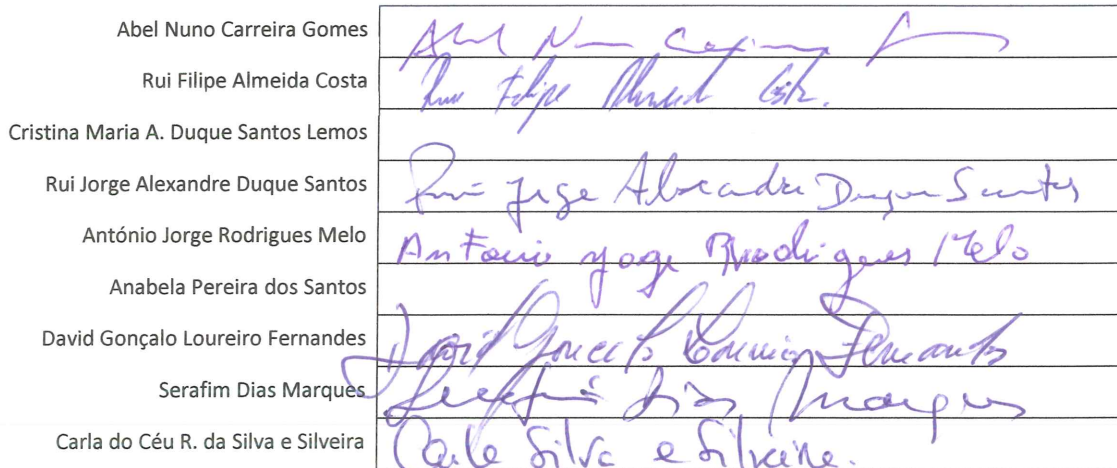 Abel Nuno Carreira Gomes Abel Nuno Carreira
Rui Filipe Almeida Costa Rui Filipe Almeida Costa.
Cristina Maria A. Duque Santos Lemos
Rui Jorge Alexandre Duque Santos Rui Jorge Alexandre Duque Santos
António Jorge Rodrigues Melo Antonio Jorge Rodrigues Melo
Anabela Pereira dos Santos
David Gonçalo Loureiro Fernandes David Gonçalo Loureiro Fernandes
Serafim Dias Marques Serafim Dias Marques
Carla do Céu R. da Silva e Silveira Carla Silva e Silveira.